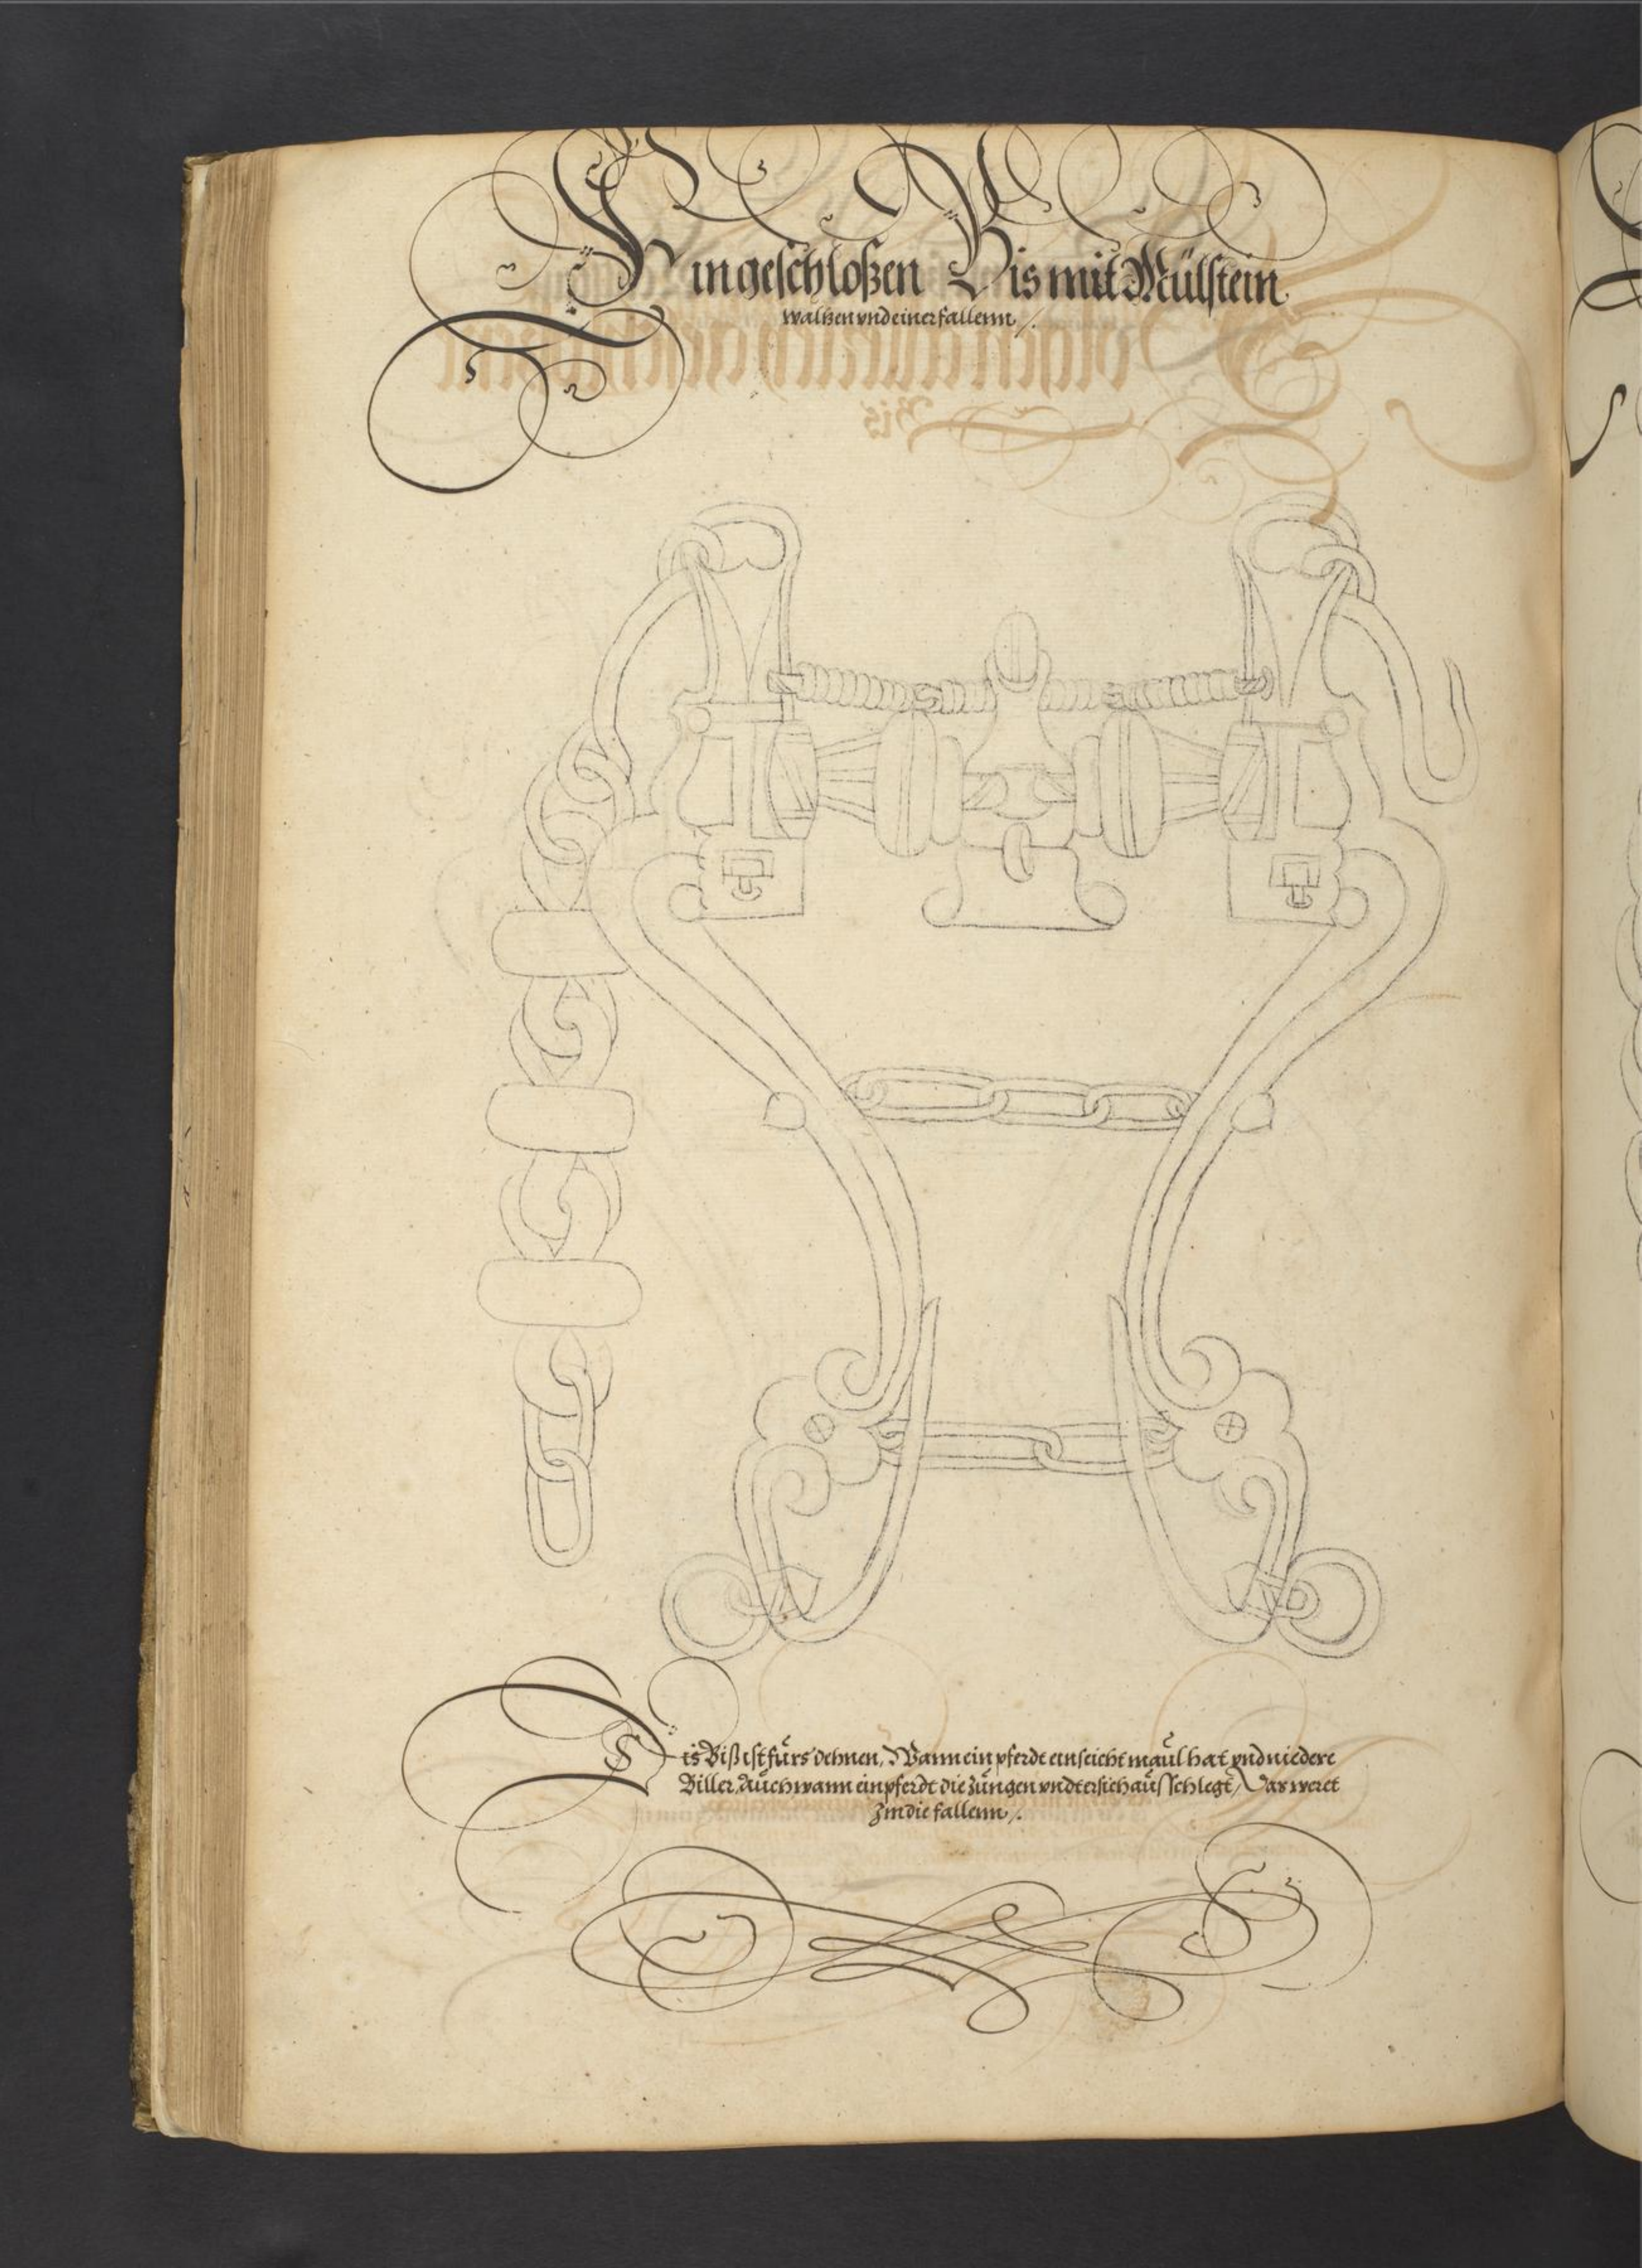 Ein geschloßen Bis mit Mülstein
waltzen vnd einer fallenn /.
Dis Biß ist fürs dehnen, Wann ein pferdt ein seicht maul hat vnd niedere
Biller. Auch wann ein pferdt die Zungen vndtersich ausschlegt, Das weret
Jm die fallenn /.